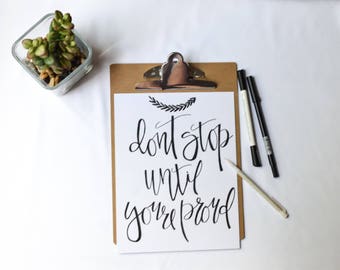 don't stop
until
you're proud